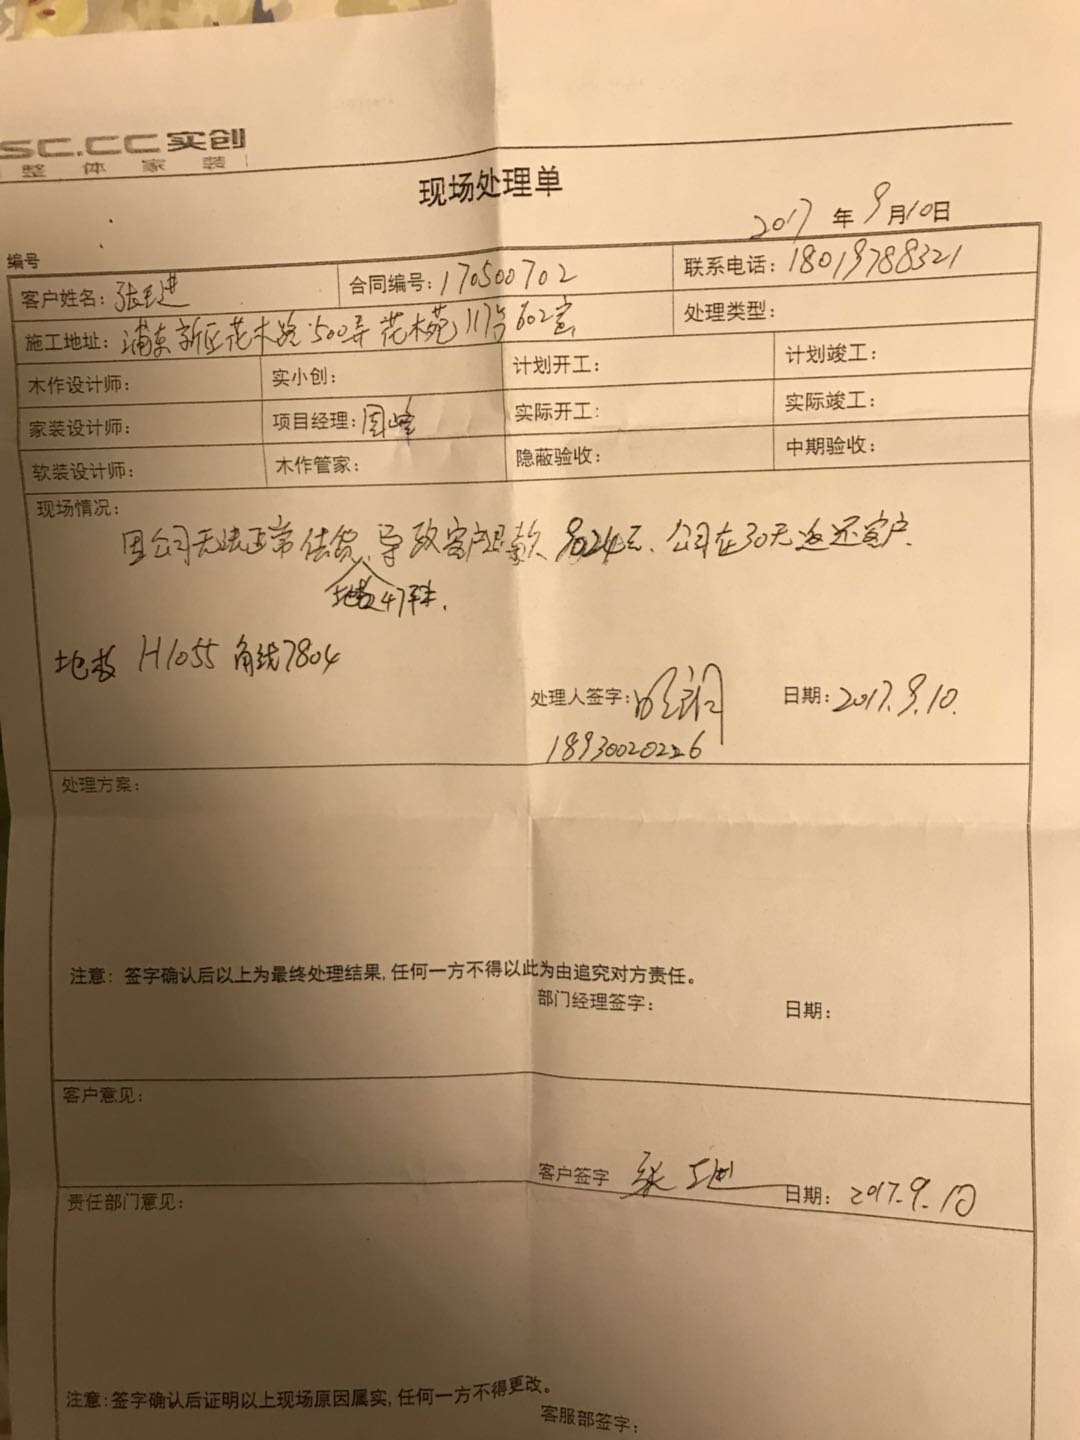 SC.CC实创
整体家装
现场处理单
2017年9月10日
编号
客户姓名: 张玉进 合同编号: 170500702 联系电话: 18019788321
施工地址: 浦东新区花木路·500弄花木苑117号602室 处理类型:
木作设计师: 实小创: 计划开工: 计划竣工:
家装设计师: 项目经理: 周峰 实际开工: 实际竣工:
软装设计师: 木作管家: 隐蔽验收: 中期验收:
现场情况:
因公司无法正常供货、导致客户退款 9024元、公司在30天返还客户.
地板47平米.
地板 H1055 角线7804
处理人签字: 日期: 2017.9.10.
18930020226
处理方案:
注意: 签字确认后以上为最终处理结果,任何一方不得以此为由追究对方责任。
部门经理签字: 日期:
客户意见:
客户签字 张玉进 日期: 2017.9.10
责任部门意见:
注意:签字确认后证明以上现场原因属实,任何一方不得更改。
客服部签字: